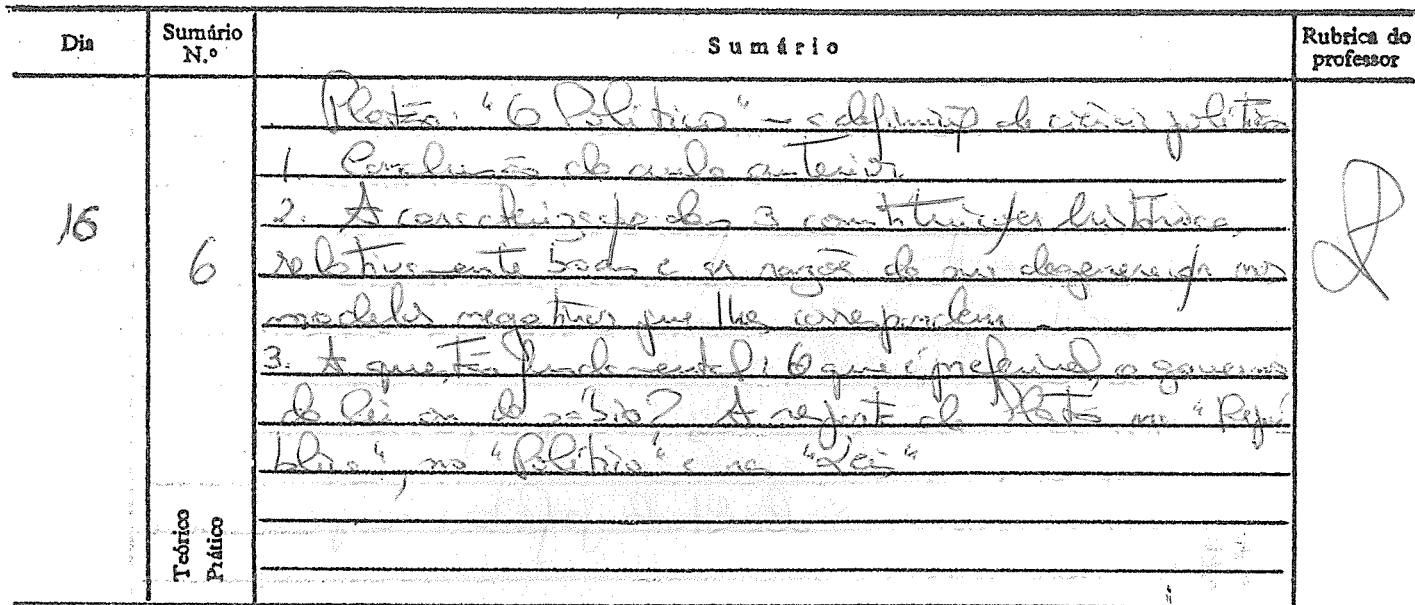 Dia
Sumário N.º
Sumário
Rubrica do professor
16
6
Platão: "O Político" – a definição de ciência política
1. Conclusão da aula anterior.
2. A caracterização das 3 constituições históricas
relativamente boas e as razões da sua degenerescência nos
modelos negativos que lhes correspondem.
3. A questão fundamental: O que é preferível, o governo
da lei ou do sábio? A resposta de Platão na "Repú
blica", no "Político" e nas "Leis"
Teórico
Prático